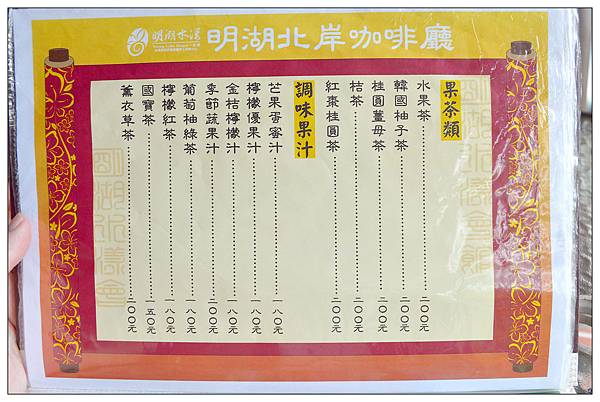 明湖水漾
明湖北岸咖啡廳
果茶類
水果茶……二〇〇元
韓國柚子茶……二〇〇元
桂圓薑母茶……二〇〇元
桔茶……二〇〇元
紅棗桂圓茶……二〇〇元
調味果汁
芒果蛋蜜汁……一八〇元
檸檬優果汁……一八〇元
金桔檸檬汁……一八〇元
季節蔬果汁……二〇〇元
葡萄柚綠茶……一八〇元
檸檬紅茶……一八〇元
國寶茶……一五〇元
薰衣草茶……二〇〇元